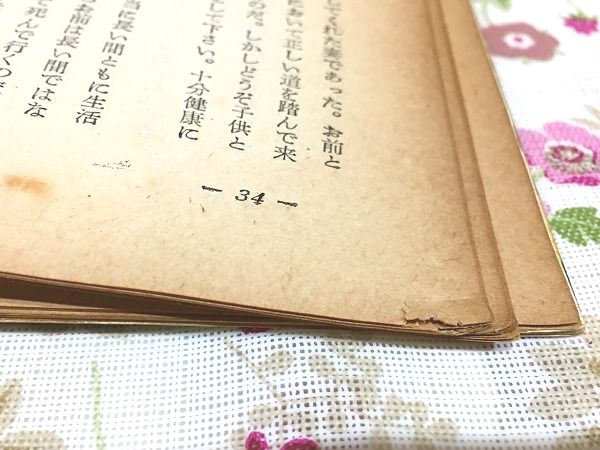 してくれた妻であった。お前と
において正しい道を踏んで来
のだ。しかしどうぞ子供と
して下さい。十分健康に
当に長い間ともに生活
お前は長い間ではな
死んで行くので
— 34 —